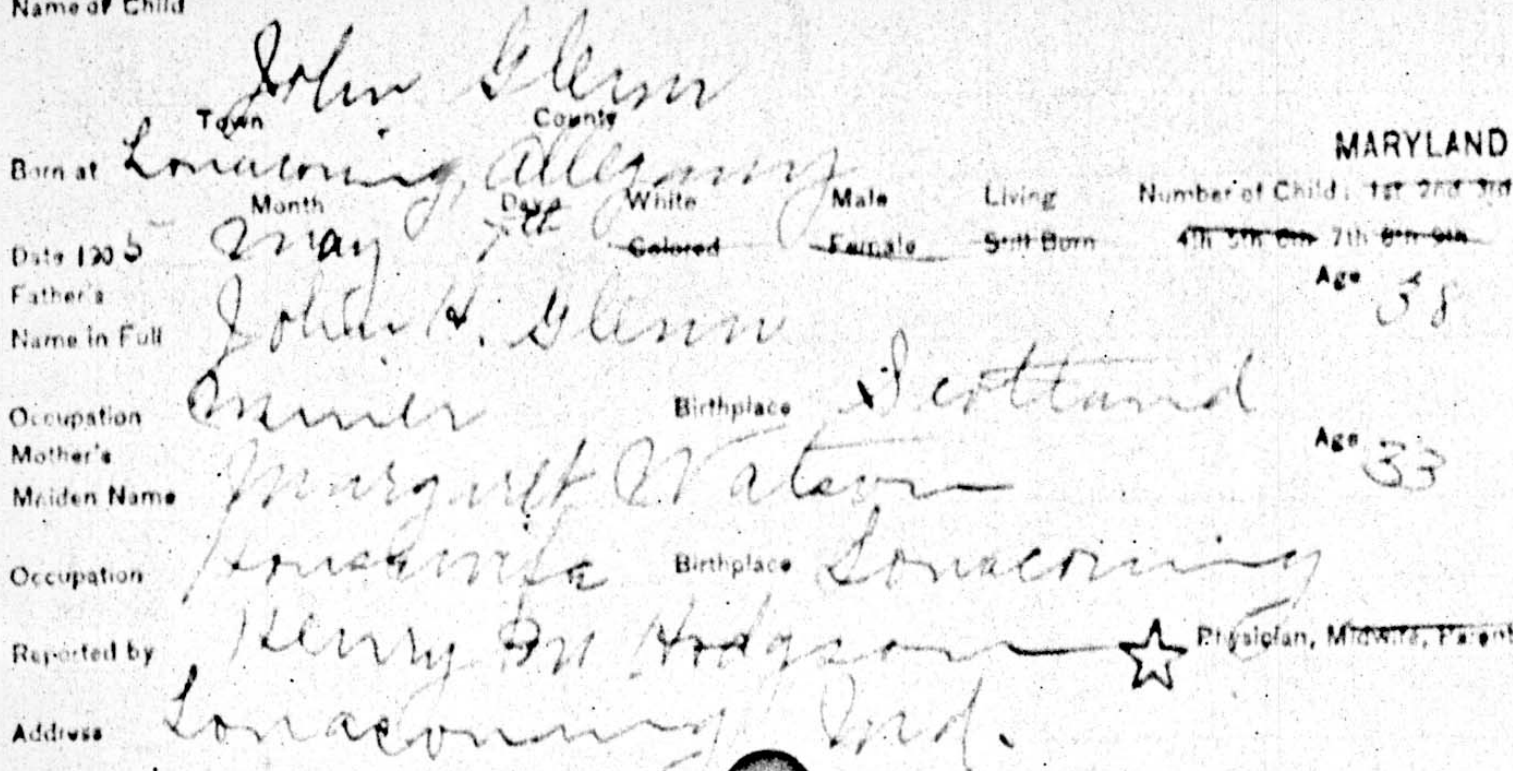 Name of Child
John Glenn
Town County
Born at Lonaconing, Allegany MARYLAND
Month Day White Male Living Number of Child: 1st 2nd 3rd
Date 1905 May 7th Colored Female Still Born 4th 5th 6th 7th 8th 9th
Father's Age 38
Name in Full John H. Glenn
Occupation Miner Birthplace Scotland
Mother's Age 33
Maiden Name Margaret Watson
Occupation Housewife Birthplace Lonaconing
Reported by Henry M Hodgson Physician, Midwife, Parent
Address Lonaconing Md.